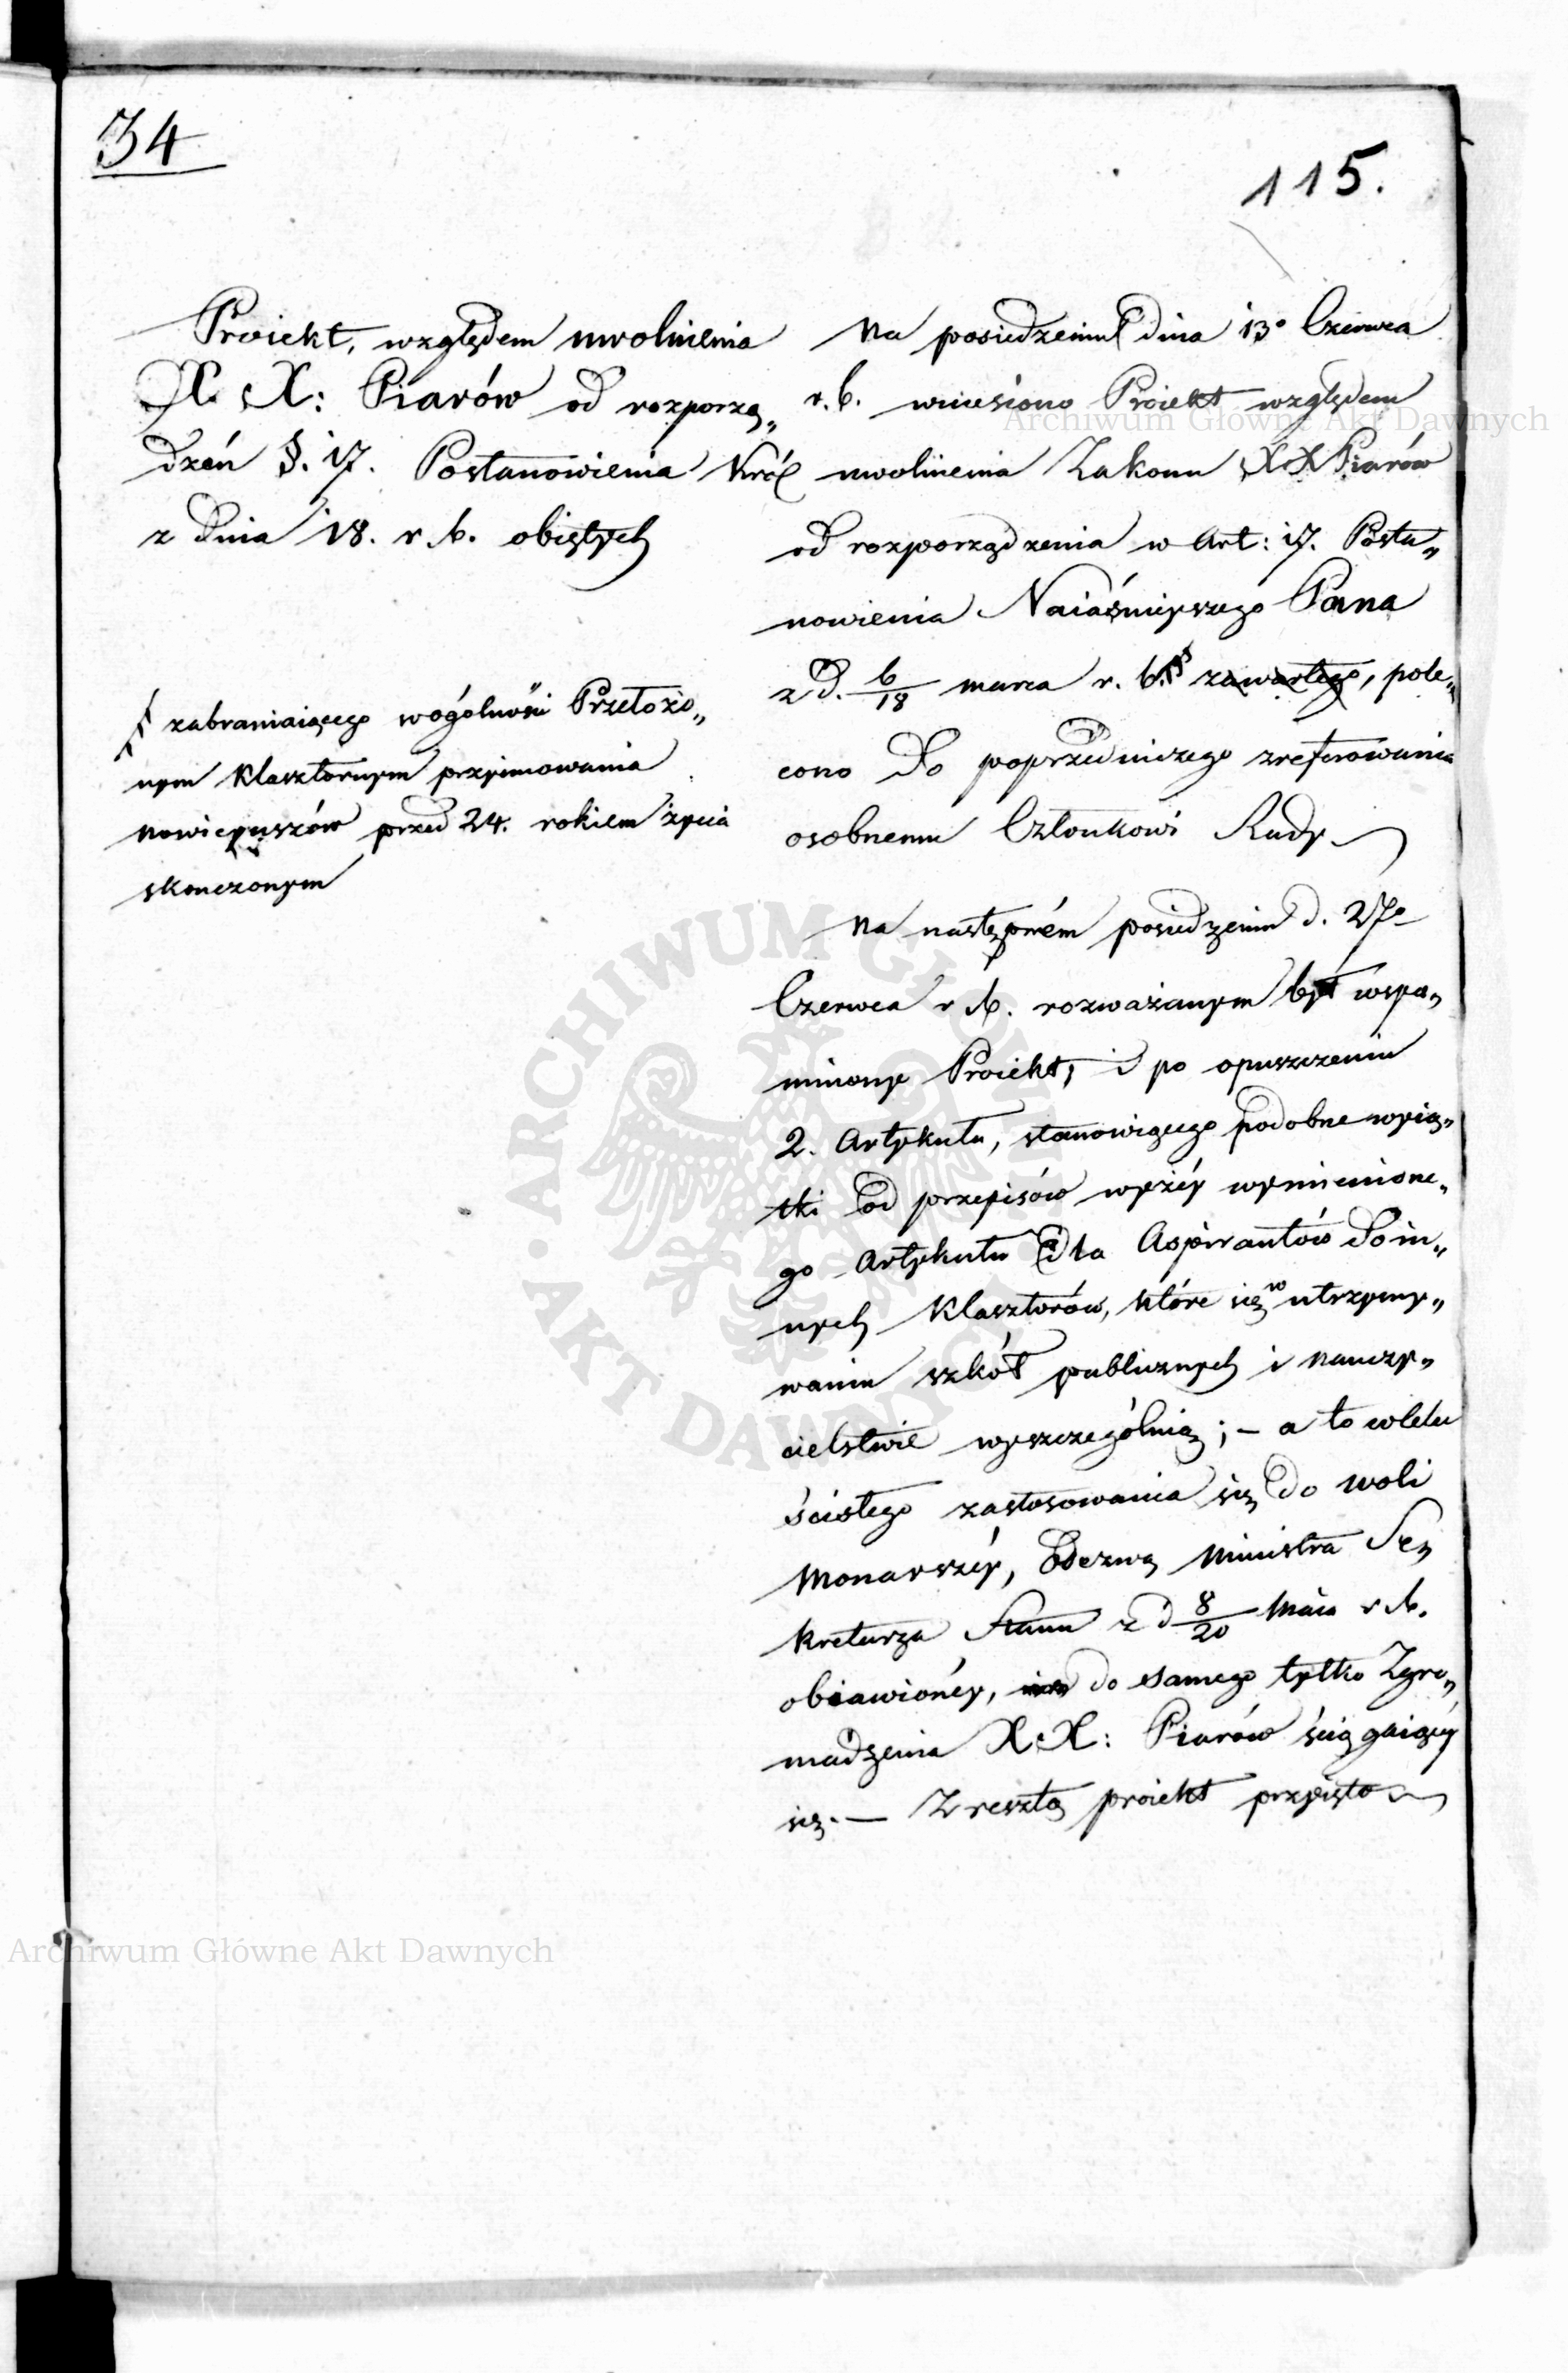 34
115.
Proiekt, względem uwolnienia
X X: Piarów od rozporzą„
dzeń §. 17. Postanowienia Król
z dnia 18. r b. obiętych
zabraniaiącego wogólności Przełożo„
nym Klasztornym przyimowania
nowicyuszów przed 24. rokiem życia
skonczonym
Na posiedzeniu dnia 13º Czerwca
r. b. wniesiono Proiekt względem
uwolnienia Zakonu XX Piarów
od rozporządzenia w Art: 17. Posta„
nowienia Naiaśnieyszego Pana
z d. 6/18 marca r. b. zawartego, pole„
cono do poprzedniczego zreferowania
osobnemu Członkowi Rady
Na następném posiedzeniu d. 27º
Czerwca r b. rozważanym był wspo„
miniony Proiekt, i po opuszczeniu
2. Artykułu, stanowiącego podobne wyią„
tki od przepisów wyżéy wymienione„
go Artykułu dla Aspirantów do in„
nych Klasztorów, które się w utrzymy„
waniu szkół publicznych i nauczy„
cielstwie wyszczególnią; – a to w celu
ścisłego zastosowania się do woli
Monarszéy, odezwą Ministra Se„
kretarza Stanu z d 8/20 Maia r b.
obiawionéy, do samego tylko Zgro„
madzenia XX: Piarów ściągaiącéy
się. — Zresztą proiekt przyięto
Archiwum Główne Akt Dawnych
ARCHIWUM GŁÓWNE AKT DAWNYCH
Archiwum Główne Akt Dawnych